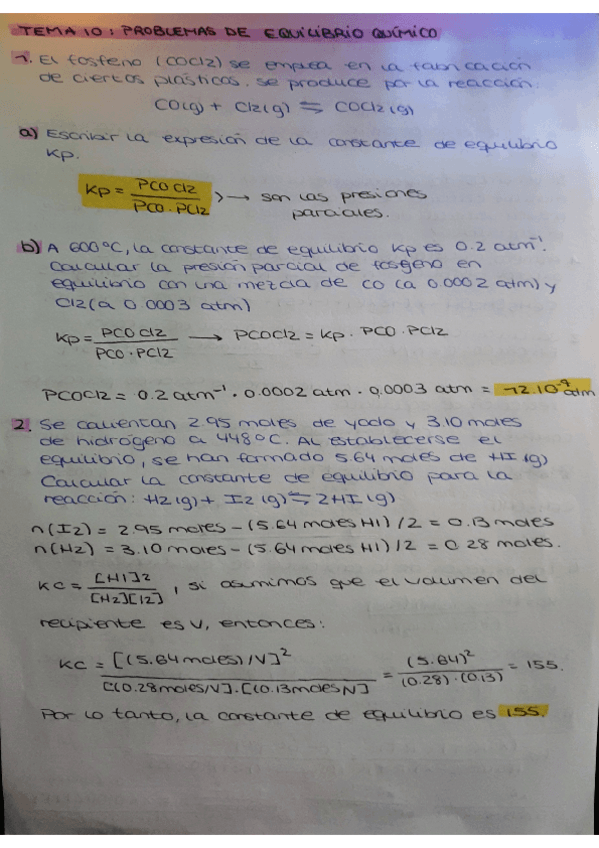 TEMA 10: PROBLEMAS DE EQUILIBRIO QUÍMICO
1. El fosfeno (COCl2) se emplea en la fabricación
de ciertos plásticos. se produce por la reacción:
CO(g) + Cl2(g) ⇆ COCl2(g)
a) Escribir la expresión de la constante de equilibrio
Kp.
Kp = PCOCl2 / PCO · PCl2 > → son las presiones
parciales.
b) A 600°C, la constante de equilibrio Kp es 0.2 atm⁻¹.
Calcular la presión parcial de fosgeno en
equilibrio con una mezcla de CO (a 0.0002 atm) y
Cl2 (a 0.0003 atm)
Kp = PCOCl2 / PCO · PCl2 → PCOCl2 = Kp · PCO · PCl2
PCOCl2 = 0.2 atm⁻¹ · 0.0002 atm · 0.0003 atm = 12.10⁻⁹ atm
2. Se calientan 2.95 moles de yodo y 3.10 moles
de hidrógeno a 448°C. Al establecerse el
equilibrio, se han formado 5.64 moles de HI (g)
Calcular la constante de equilibrio para la
reacción: H2(g) + I2(g) ⇆ 2HI(g)
n(I2) = 2.95 moles - (5.64 moles HI) / 2 = 0.13 moles
n(H2) = 3.10 moles - (5.64 moles HI) / 2 = 0.28 moles.
Kc = [HI]2 / [H2][I2] , si asumimos que el volumen del
recipiente es V, entonces:
Kc = [(5.64 moles) / V]² / [(0.28 moles/V] · [(0.13 moles/V] = (5.64)² / (0.28) · (0.13) = 155.
Por lo tanto, la constante de equilibrio es 155.